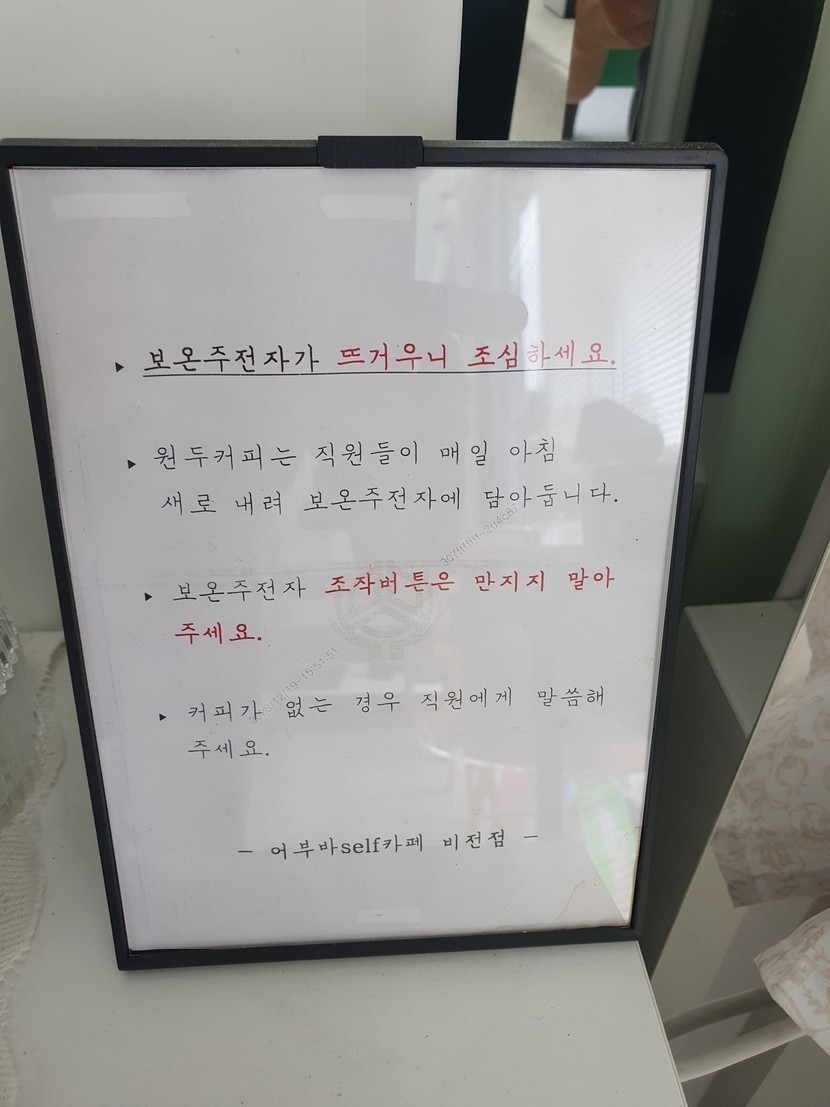 ▶ 보온주전자가 뜨거우니 조심하세요.
▶ 원두커피는 직원들이 매일 아침
새로 내려 보온주전자에 담아둡니다.
▶ 보온주전자 조작버튼은 만지지 말아
주세요.
▶ 커피가 없는 경우 직원에게 말씀해
주세요.
- 어부바self카페 비전점 -